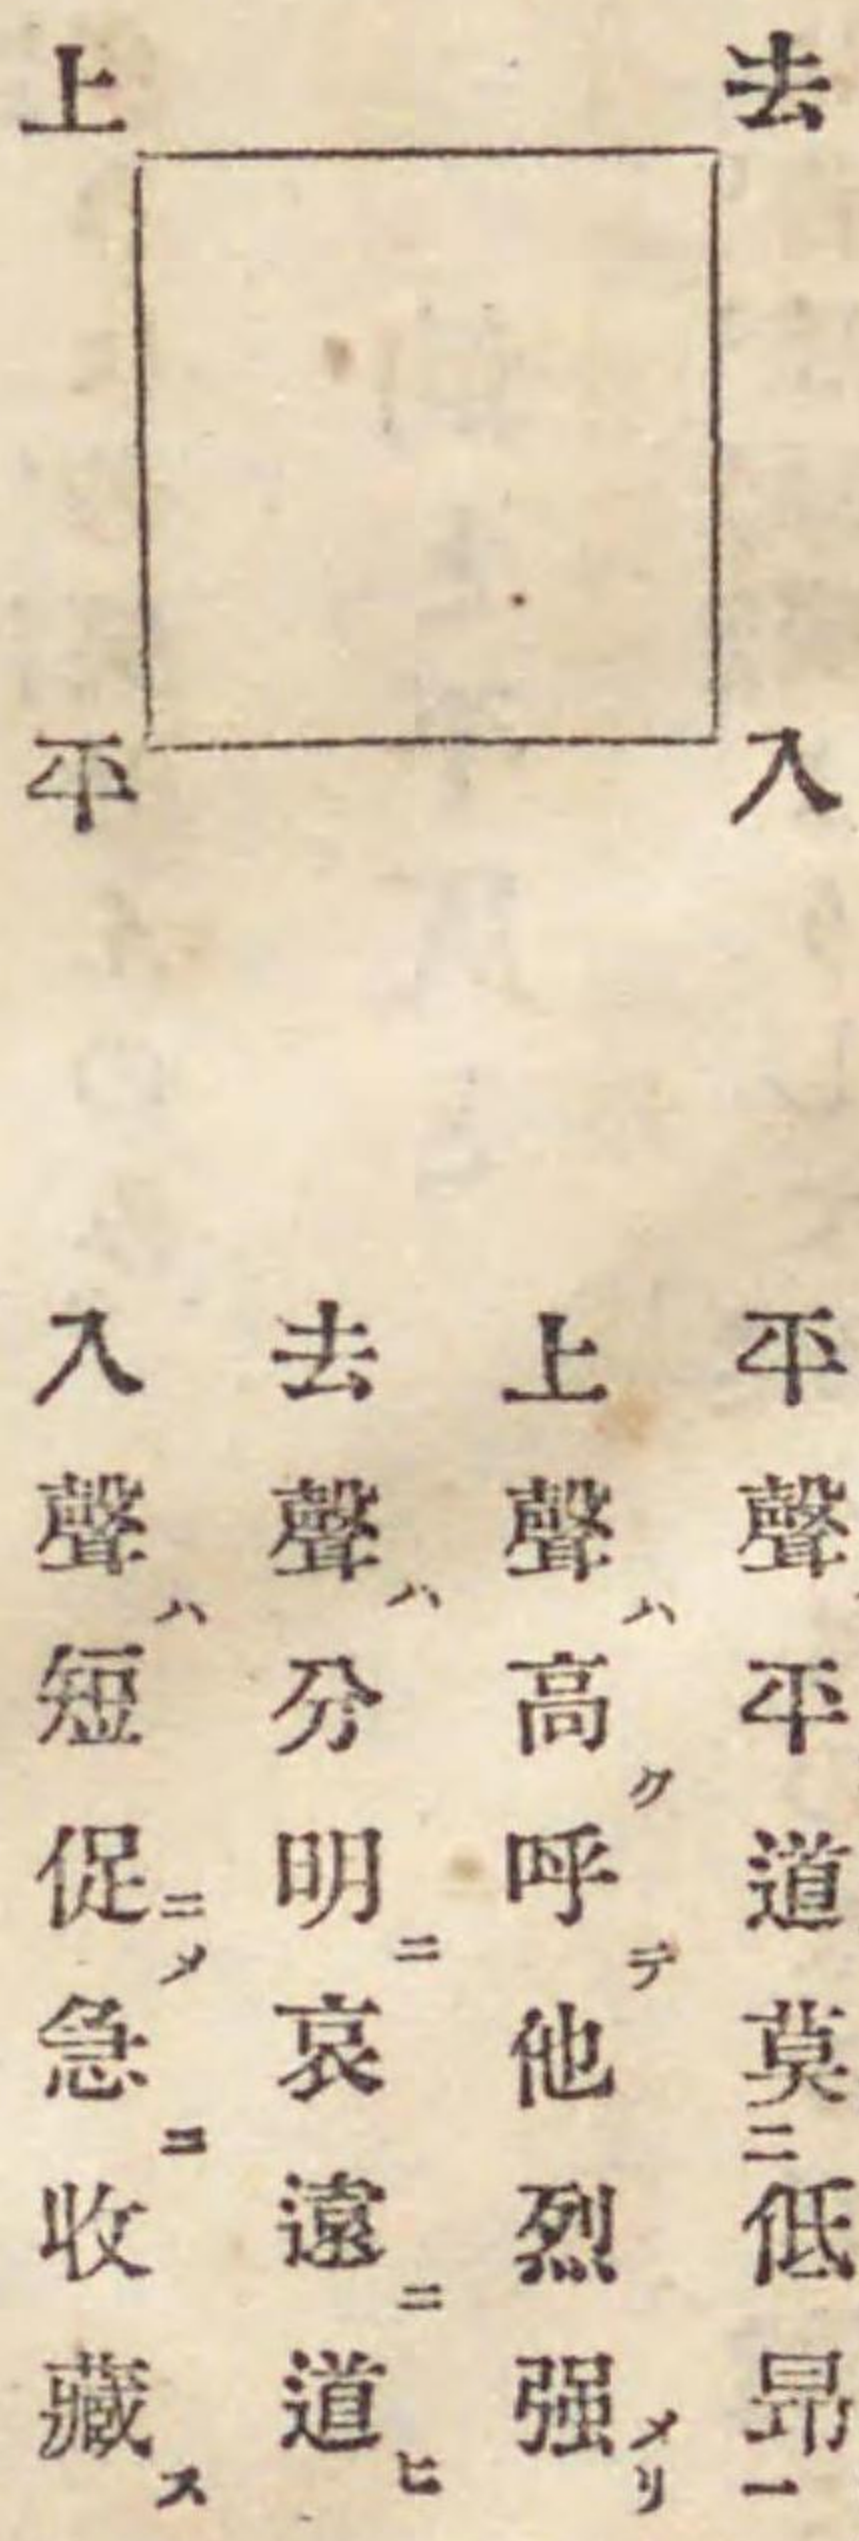 去
上
入
平
平聲平道莫二低昂一
上聲ハ高ク呼テ他烈强メリ
去聲ハ分明ニ哀遠ニ道ヒ
入聲ハ短促ニメ急ニ收藏ス